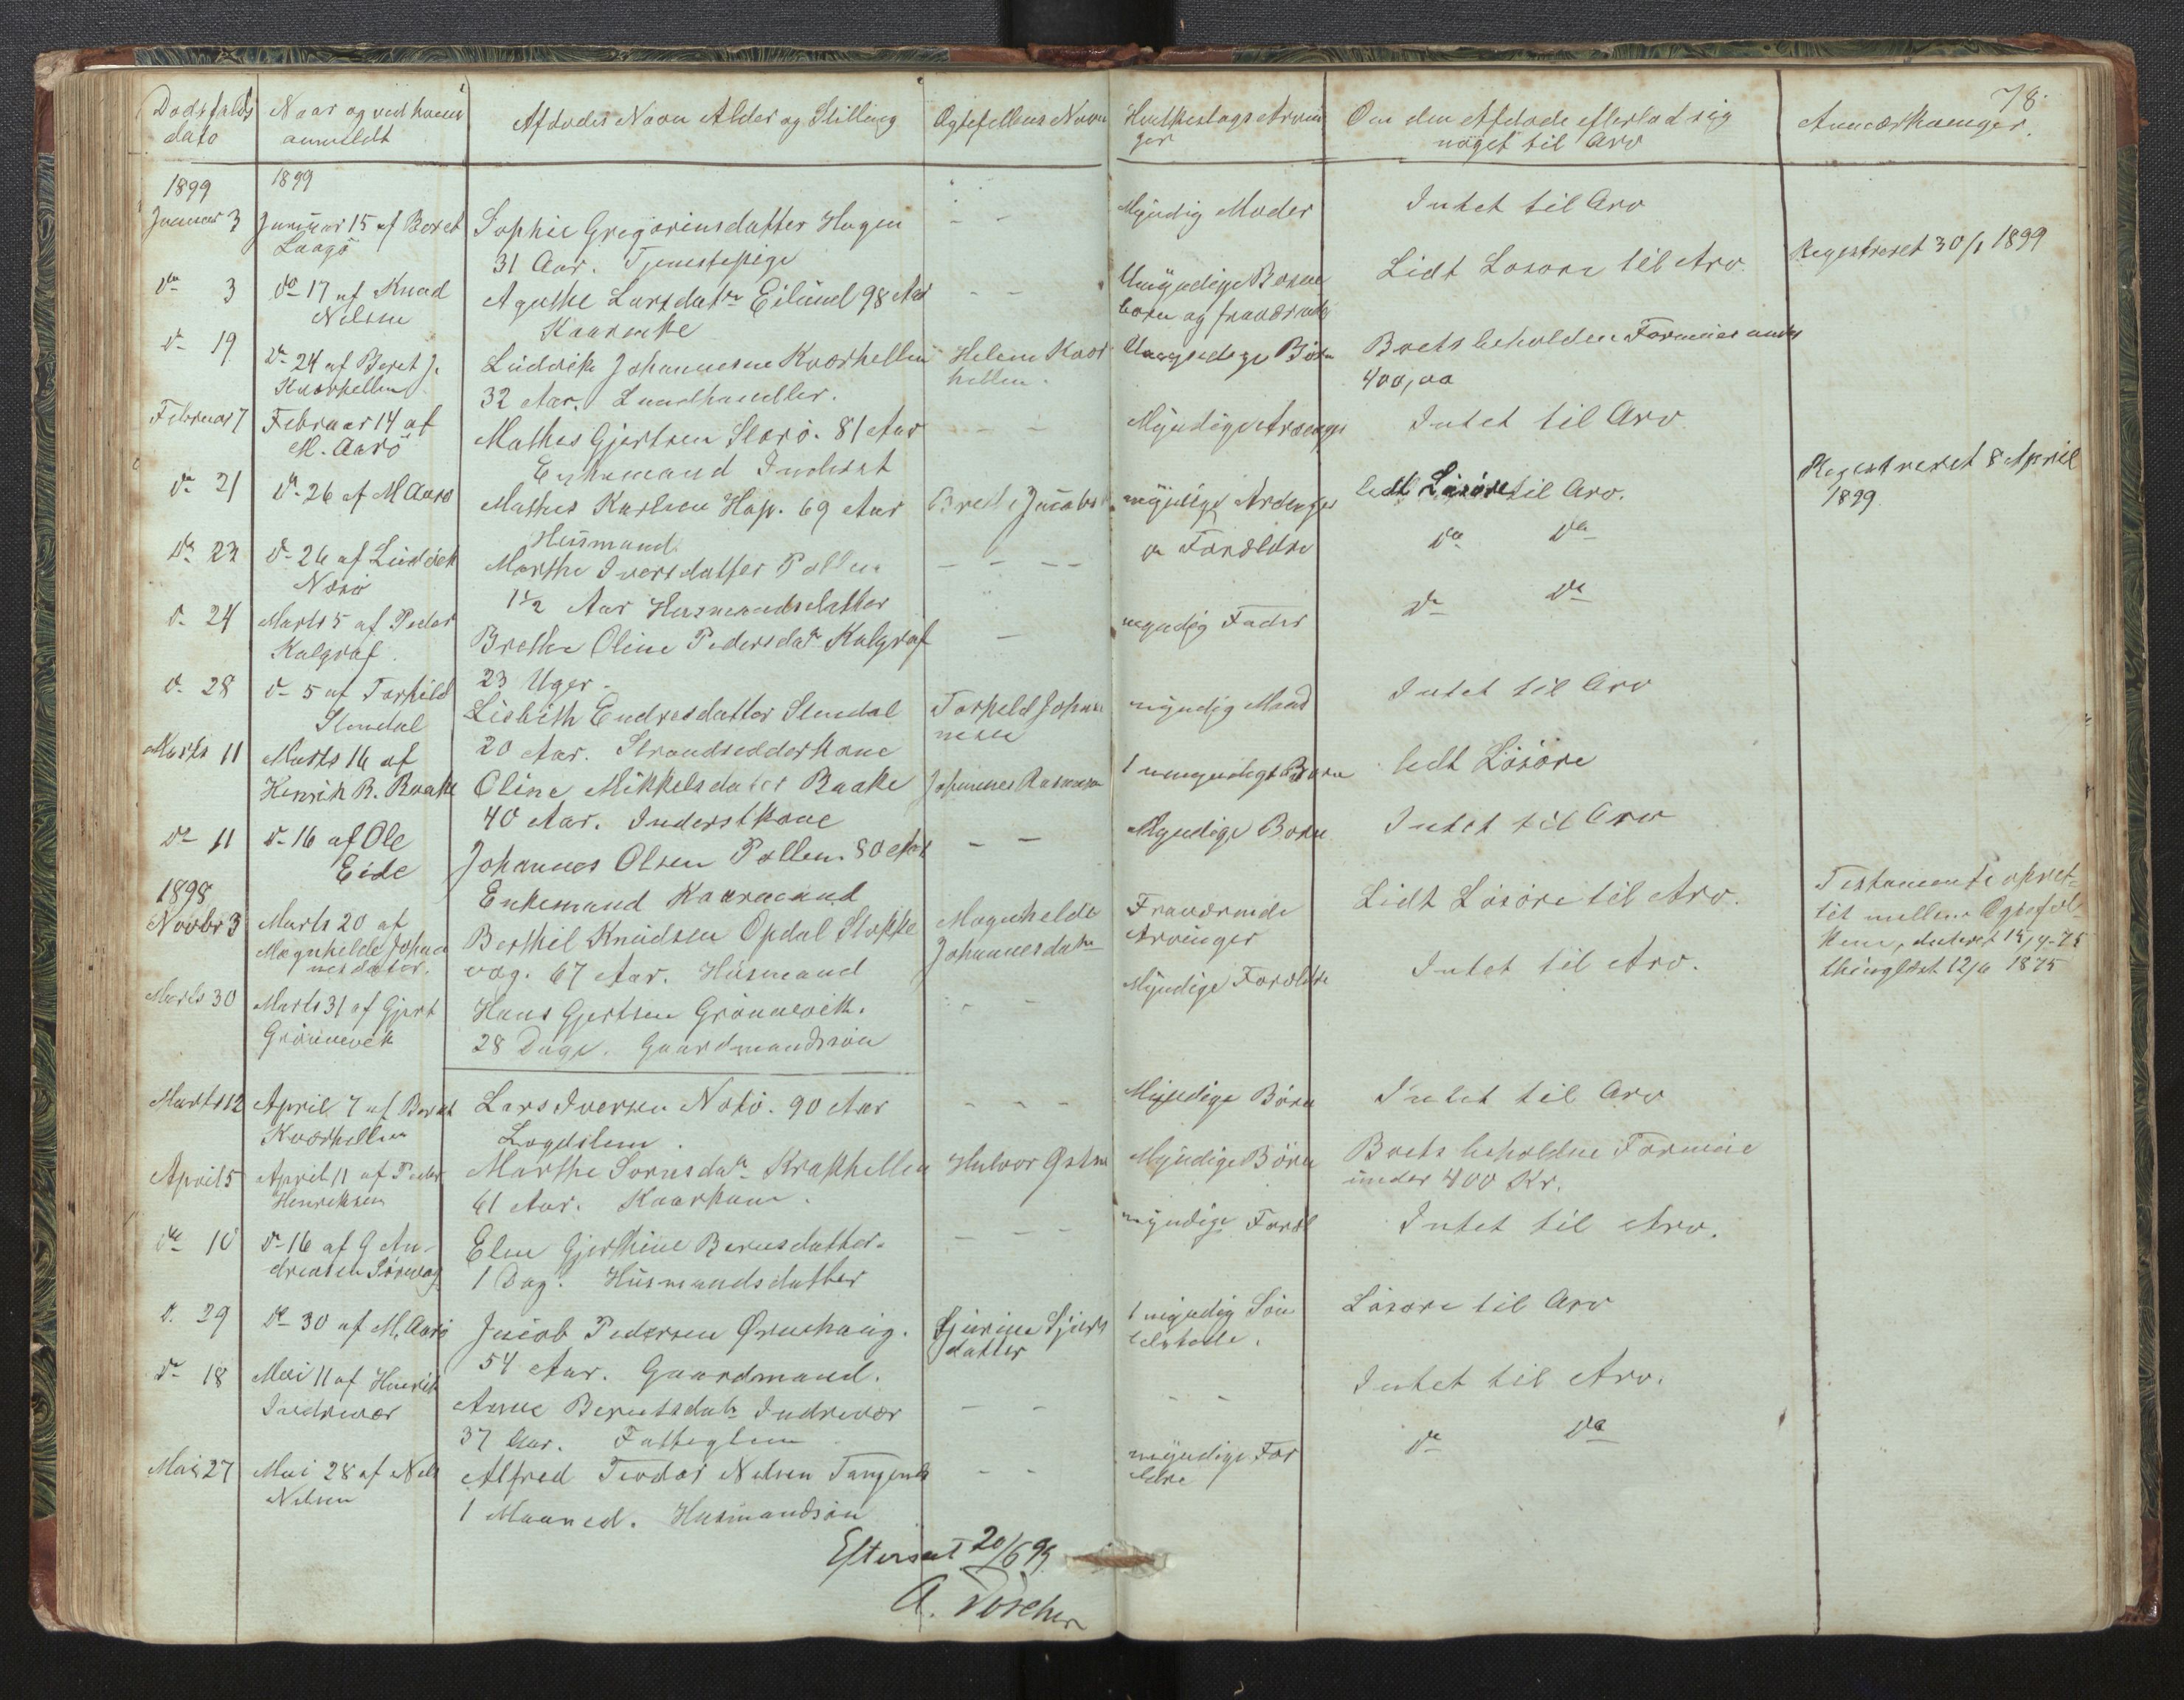 78.
Dødsfalds dato | Naar og ved hvem anmeldt | Afdødes Navn Alder og Stilling | Ægtefellens Navn | Hvilkeslags Arvinger | Om den Afdøde efterlod sig noget til Arv | Anmærkninger.
1899 | 1899
Januar 3 | Januar 15 af Beret | Sophie Gregoriusdatter Hagen | - - | Myndig Moder | Intet til Arv
31 Aar. Tjenestepige
do 3 | do 17 af Knud Nilsen | Agathe Larsdatr Eilund 98 Aar | - - | Umyndige Børne | Lidt Løsøre til Arv. | Registreret 30/1 1899
børn og fraværende
do 19 | do 24 af Beret J. Kværhellen | Ludvik Johannesen Kværhellen | Helene Kvær | Umyndige Børn | Boets beholden Formue under
32 Aar. Landhandler. | hellen. | 400,00
Februar 7 | Februar 14 af M. Aarø | Mathis Gjertsen Storø. 81 Aar | - - | Myndige Arvinger | Intet til Arv.
Enkemand Inderst
do 21 | do 26 af M Aarø | Mathis Karlsen Hop. 69 Aar | myndige Arvinger | lidt Løsøre til Arv. | Registreret 8 April
Husmand | 1899
do 23 | do 26 af Ludvik | Marthe Iversdatter Pollen | - - - - | do Forældre | do do
1 1/2 Aar Husmandsdatter
do 24 | Marts 5 af Peder Kalgraf. | Brethe Oline Pedersdatr Kalgraf | - | myndig Fader | do do
23 Uger.
do 28 | do 5 af Torkild | Lisbith Endresdatter | Torkeld Johanne | myndig Mand | Intet til Arv
20 Aar. Strandsidderkone | nesen
Marts 11 | Marts 16 af | Oline Mikkelsdatter Raake | Johannes Rasmusen | 1 umyndigt Barn | lidt Løsøre
Henrik R. Raake | 40 Aar. Inderstkone
do 11 | do 16 af Ole Eide | Johannes Olsen Pollen. 80 Aar | - - | Myndige Børn | Intet til Arv
1898 | Enkemand Kaarmand
Novbr 3 | Marts 20 af | Berthil Knudsen Opdal Stokke | Magnhelde | Fraværende | Lidt Løsøre til Arv. | Testamente opret-
Magnhelde Johan | vag. 67 Aar. Husmand | Johannesdatr | Arvinger | tet mellem Ægtefol-
nesdatter. | kene, dateret
Marts 30 | Marts 31 af Gjert | Hans Gjertsen Grønnevik. | - - | Myndige Forældre | Intet til Arv. | thinglæst 12/6 1875
Grønnevik | 28 Dage. Gaardmandssøn
Marts 12 | April 7 af Beret | Lars Iversen Notø. 90 Aar | - - - | Myndige Børn | Intet til Arv
Kværhellen | Lægdslem.
April 5 | April 11 af Peder | Marthe Sørnsdatr Krakhellen | Halvor Østen | Myndige Børn | Boets beholdne Formue
Henriksen | 61 Aar. Kaarkone. | under 400 Kr.
do 10 | do 16 af G An- | Elen Gjerthine Berusdatter. | - - - | myndige Foræl | Intet til Arv.
dreasen | 1 Dag. Husmandsdatter
do 29 | do 30 af M. Aarø | Jacob Pedersen Ørnehaug. | 1 myndig Søn | Løsøre til Arv
54 Aar. Gaardmand. | datter
do 18 | Mai 11 af Henrik | Anne Berntsdatr Indrevær | - - | - - | Intet til Arv.
Indrevær | 37 Aar. Fattiglem
Mai 27 | Mai 28 af Nils | Alfred Teodor Nilsen Tangenes | - - | myndige For | do do
Nilsen | 1 Maaned. Husmandssøn | ældre
Efterseet 20/6 99
A.